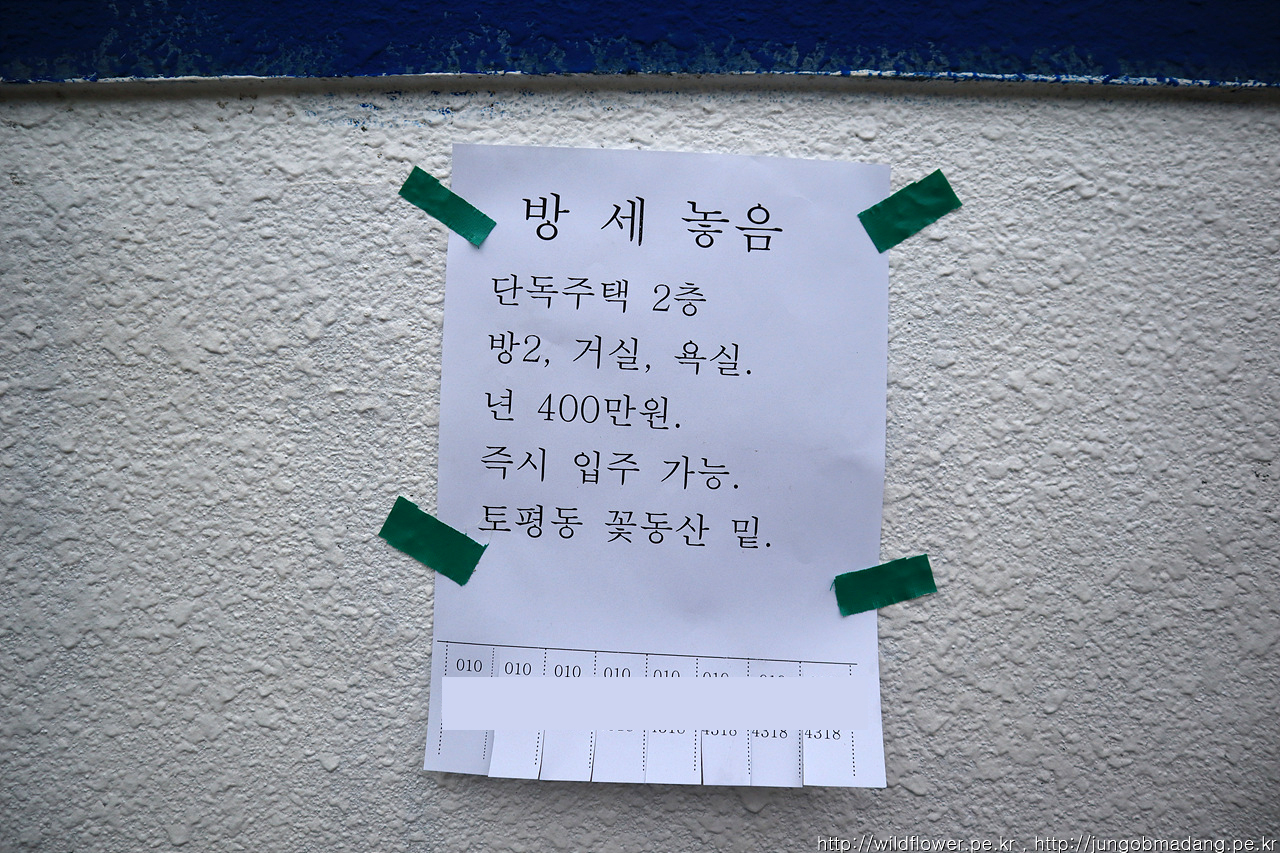 방 세 놓음
단독주택 2층
방2, 거실, 욕실.
년 400만원.
즉시 입주 가능.
토평동 꽃동산 밑.
010 010 010 010 010 010 010
4318 4318 4318 4318
http://wildflower.pe.kr , http://jungobmadang.pe.kr